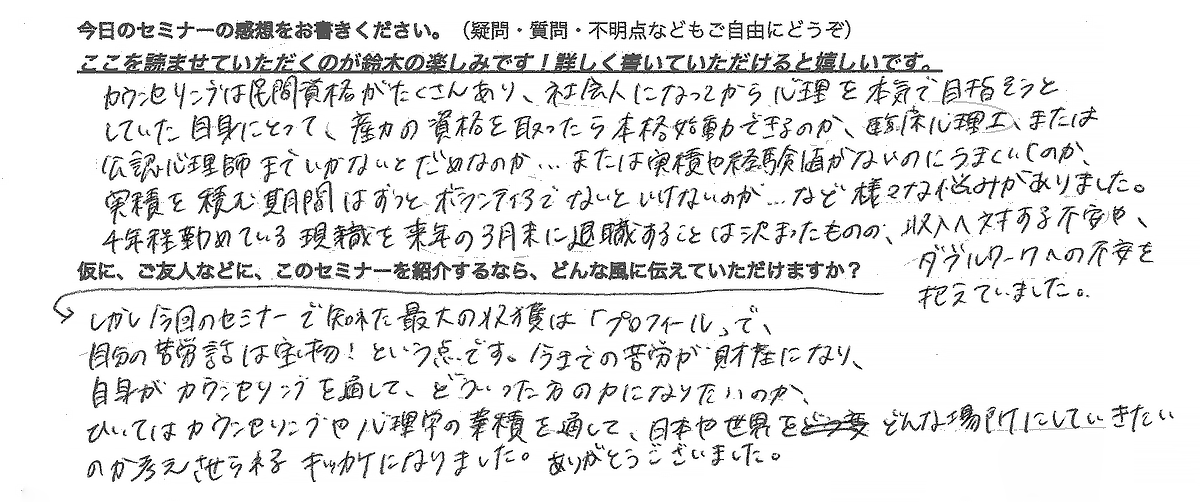 今日のセミナーの感想をお書きください。（疑問・質問・不明点などもご自由にどうぞ）
ここを読ませていただくのが鈴木の楽しみです！詳しく書いていただけると嬉しいです。
カウンセリングは民間資格がたくさんあり、社会人になってから心理を本気で目指そうと
していた自身にとって、産カの資格を取ったら本格始動できるのか、臨床心理士、または
公認心理師までいかないとだめなのか…または実積や経験値がないのにうまくいくのか、
実積を積む期間はずっとボランティアでないといけないのか…など様々な悩みがありました。
千年程勤めている現職を来年の3月末に退職することは決まったものの、収入へ対する不安や、
ダブルワークへの不安を
抱えていました。
仮に、ご友人などに、このセミナーを紹介するなら、どんな風に伝えていただけますか？
しかし今回のセミナーで知れた最大の収獲は「プロフィール」で、
自分の苦労話は宝物！という点です。今までの苦労が財産になり、
自身がカウンセリングを通して、どういった方の力になりたいのか、
ひいてはカウンセリングや心理学の業積を通して、日本や世界をどんな場所にしていきたい
のか考えさせられるキッカケになりました。ありがとうございました。